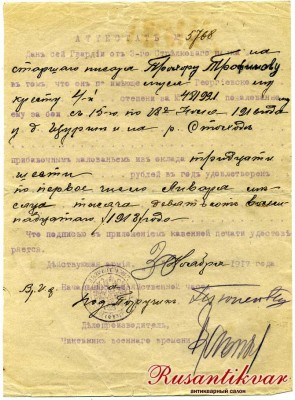 АТТЕСТАТЪ № 5768
Данъ сей Гвардіи отъ 3-го Стрѣлковаго на
старшаго писаря Трофиму Трофимову
въ томъ, что онъ по имѣющемуся Георгіевскому
кресту 4-й степени за № пожалованному
ему за бои съ 15-го по 18-е Іюля 1916 года
у д. и на р. Стоходъ
прибавочнымъ жалованьемъ изъ оклада тридцати
шести рублей въ годъ удовлетворенъ
по первое число Января мѣ-
сяца тысяча девятьсотъ восем-
надцатаго /1918 года.
Что подписью съ приложеніемъ казенной печати удостовѣ-
ряется.
Дѣйствующая армія. 3 Ноября 1917 года
Начальникъ хозяйственной части
Подпоручикъ
Дѣлопроизводитель,
Чиновникъ военнаго времени
Rusantikvar
антикварный салон